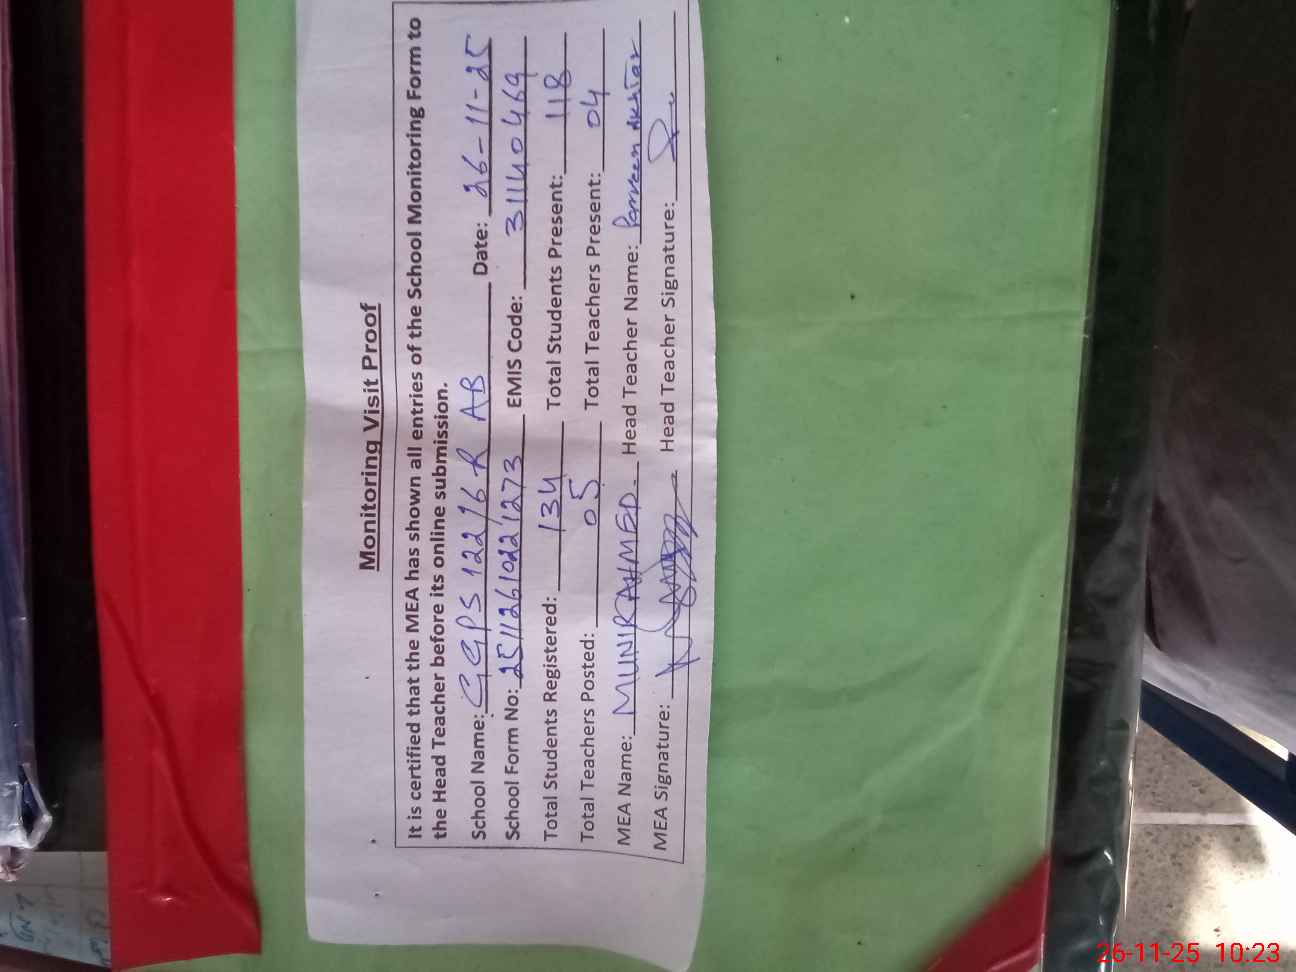 Monitoring Visit Proof
It is certified that the MEA has shown all entries of the School Monitoring Form to
the Head Teacher before its online submission.
School Name: GGPS 122/6R AB Date: 26-11-25
School Form No: 251126102221273 EMIS Code: 31140469
Total Students Registered: 134 Total Students Present: 118
Total Teachers Posted: 05 Total Teachers Present: 04
MEA Name: MUNIR AHMED. Head Teacher Name: Parveen Akhtar
MEA Signature: Head Teacher Signature:
26-11-25 10:23